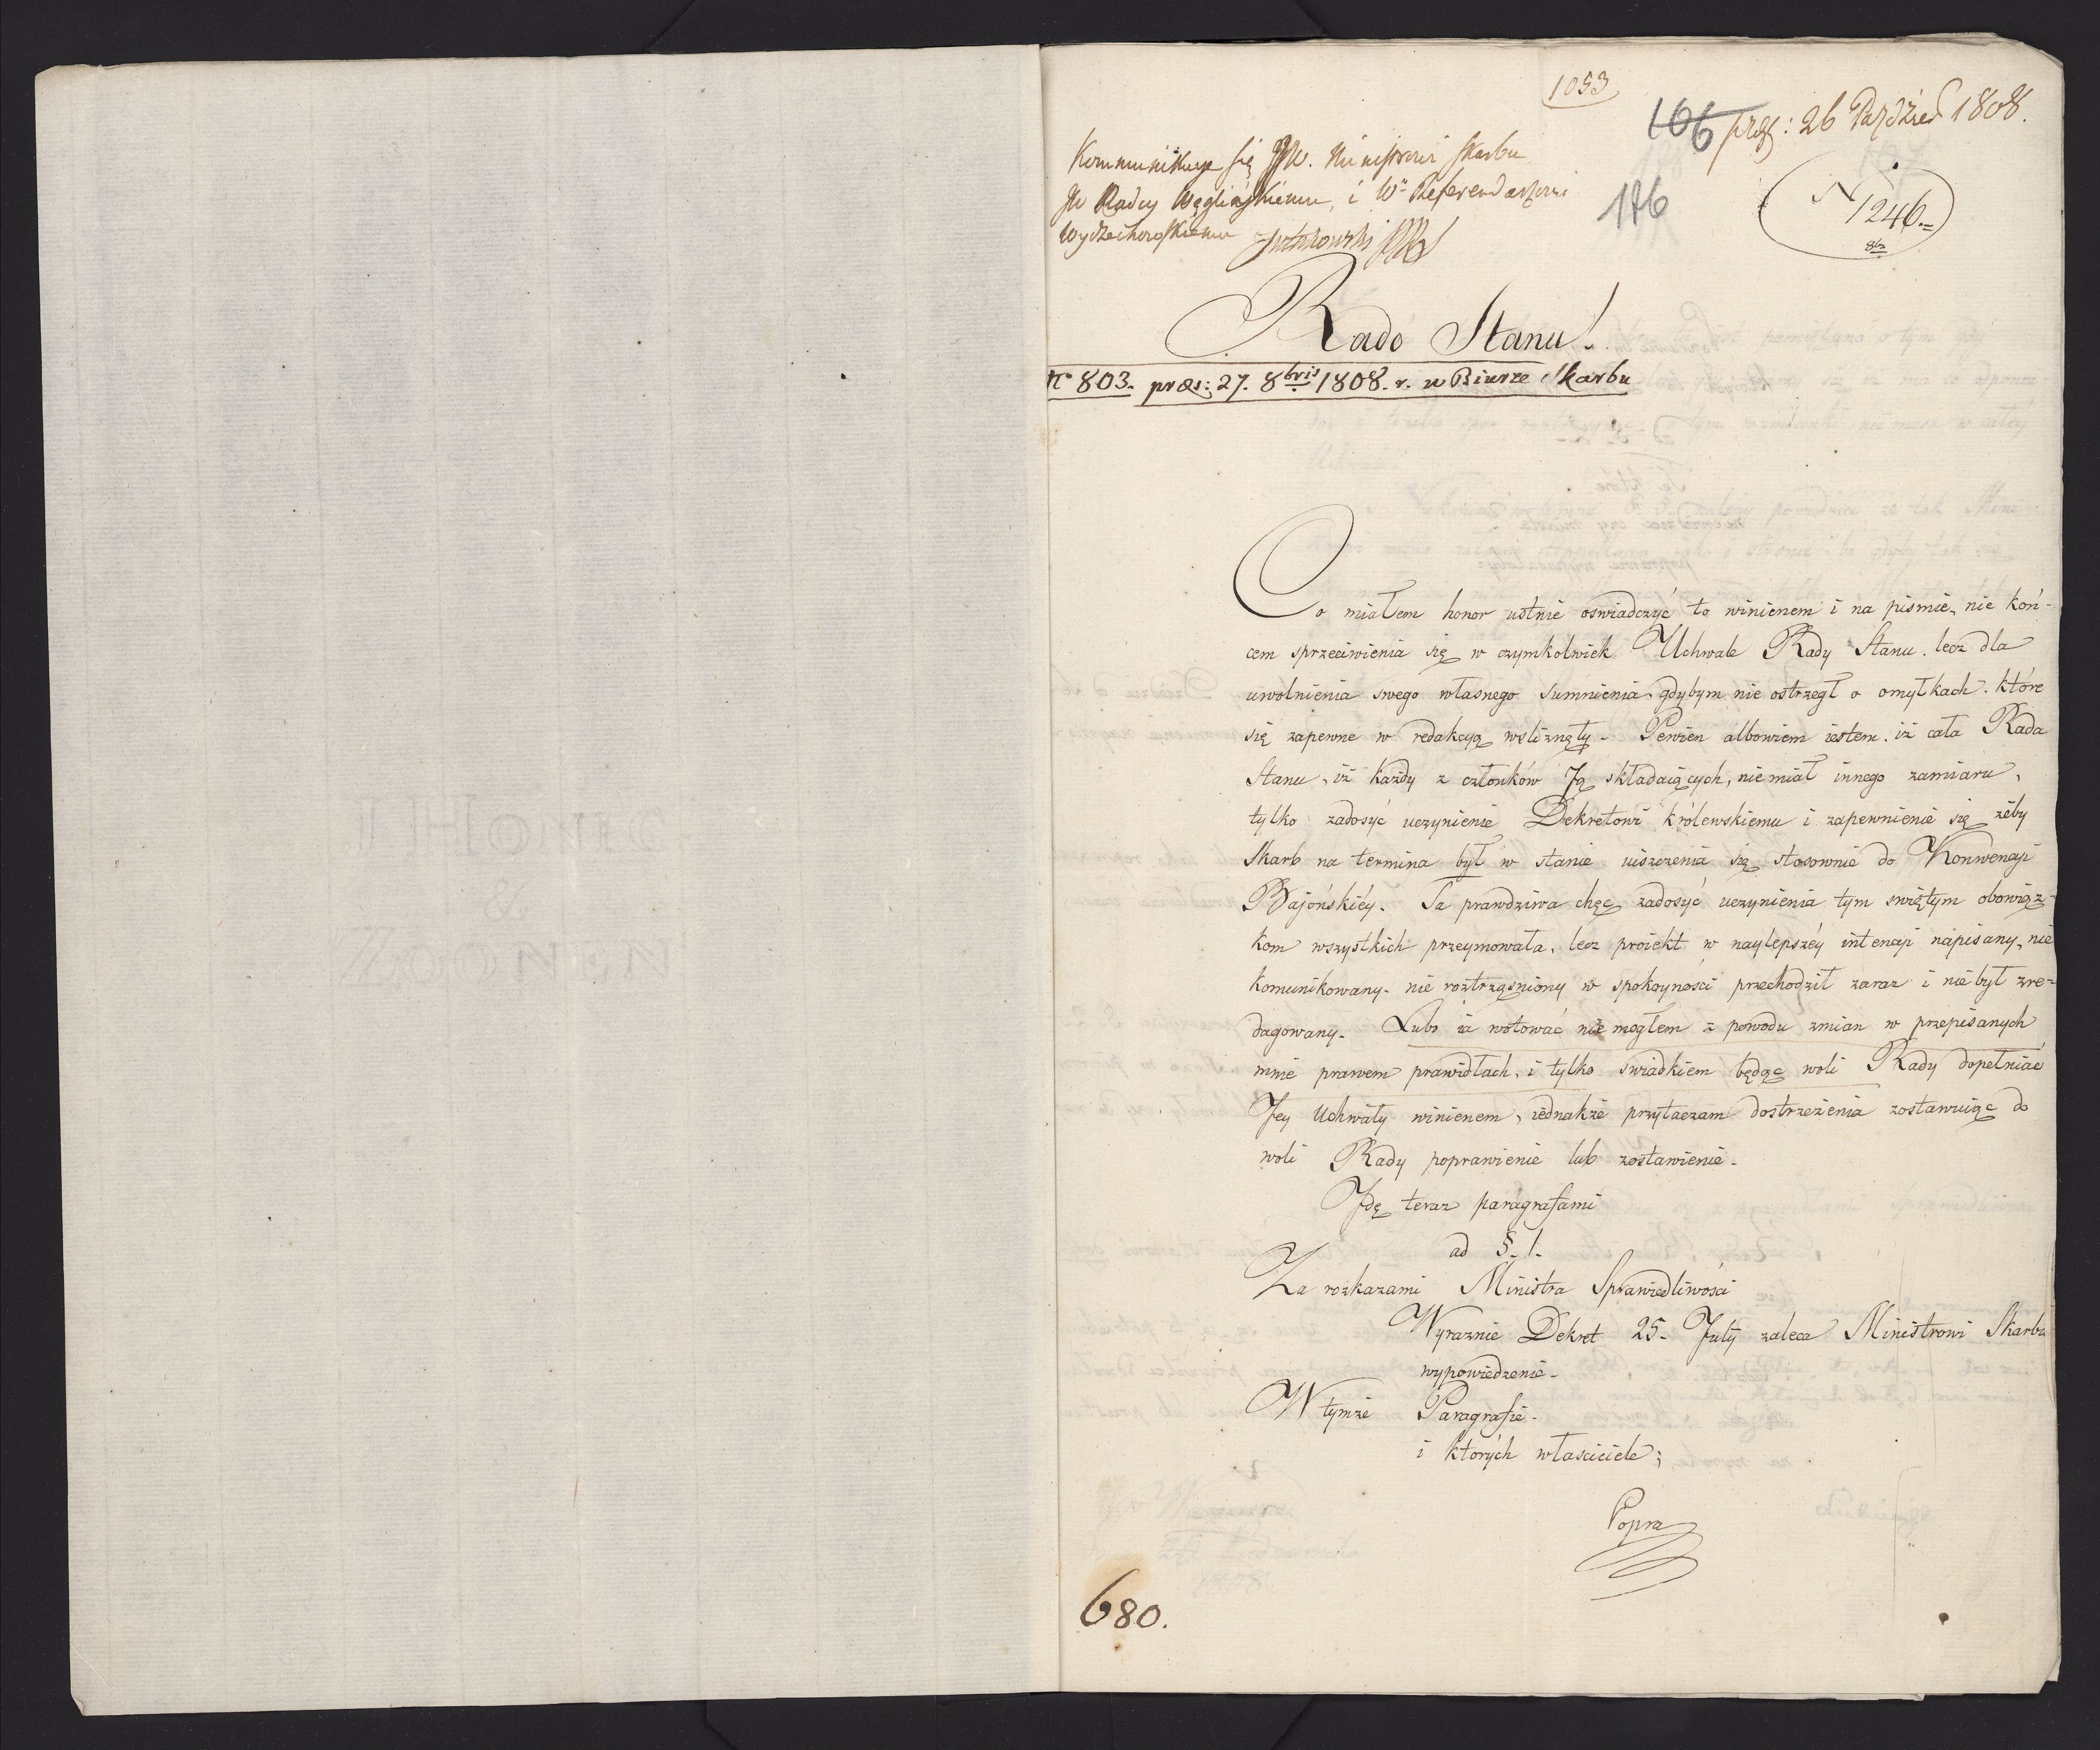 1053
106 præs: 26 Paździer 1808.
Kommunikuje się JW. Ministrowi Skarbu
JW Radcy Węglińskiemu, i Wº Referendarzowi
Wyczechowskiemu
176
N 1246.
8br
Rado Stanu!
Nº 803. præs: 27. 8bris 1808. r. w Biurze Skarbu
Co miałem honor ustnie oswiadczyć to winienem i na pismie, nie koń-
cem sprzeciwienia się w czymkolwiek Uchwale Rady Stanu. lecz dla
uwolnienia swego własnego sumnienia, gdybym nie ostrzegł o omyłkach. które
się zapewne w redakcyą wsliznęły. Pewien albowiem iestem. iż cała Rada
Stanu, iż każdy z członków Ją składaiących, nie miał innego zamiaru,
tylko zadosyć uczynienie Dekretowi królewskiemu i zapewnienie się żeby
Skarb na termina był w stanie uiszczenia się stosownie do Konwencji
Bajońskiéy. Ta prawdziwa chęć zadosyć uczynienia tym swiętym obowiąz-
kom wszystkich przeymowała, lecz proiekt w naylepszéy intencji napisany, nie
komunikowany. nie roztrząsniony w spokoyności przechodził zaraz i nie był zre-
dagowany. Lubo ia wotować nie mogłem z powodu zmian w przepisanych
mnie prawem prawidłach, i tylko swiadkiem będąc woli Rady dopełniać
Jey Uchwały winienem, iednakże przytaczam dostrzeżenia zostawuiąc do
woli Rady poprawienie lub zostawienie.
Idę teraz paragrafami
ad §. 1.
Za rozkazami Ministra Sprawiedliwości
Wyraznie Dekret 25. July zaleca Ministrowi Skarbu
wypowiedzenie.
W tymże Paragrafie.
i których własciciele;
Popra
680.